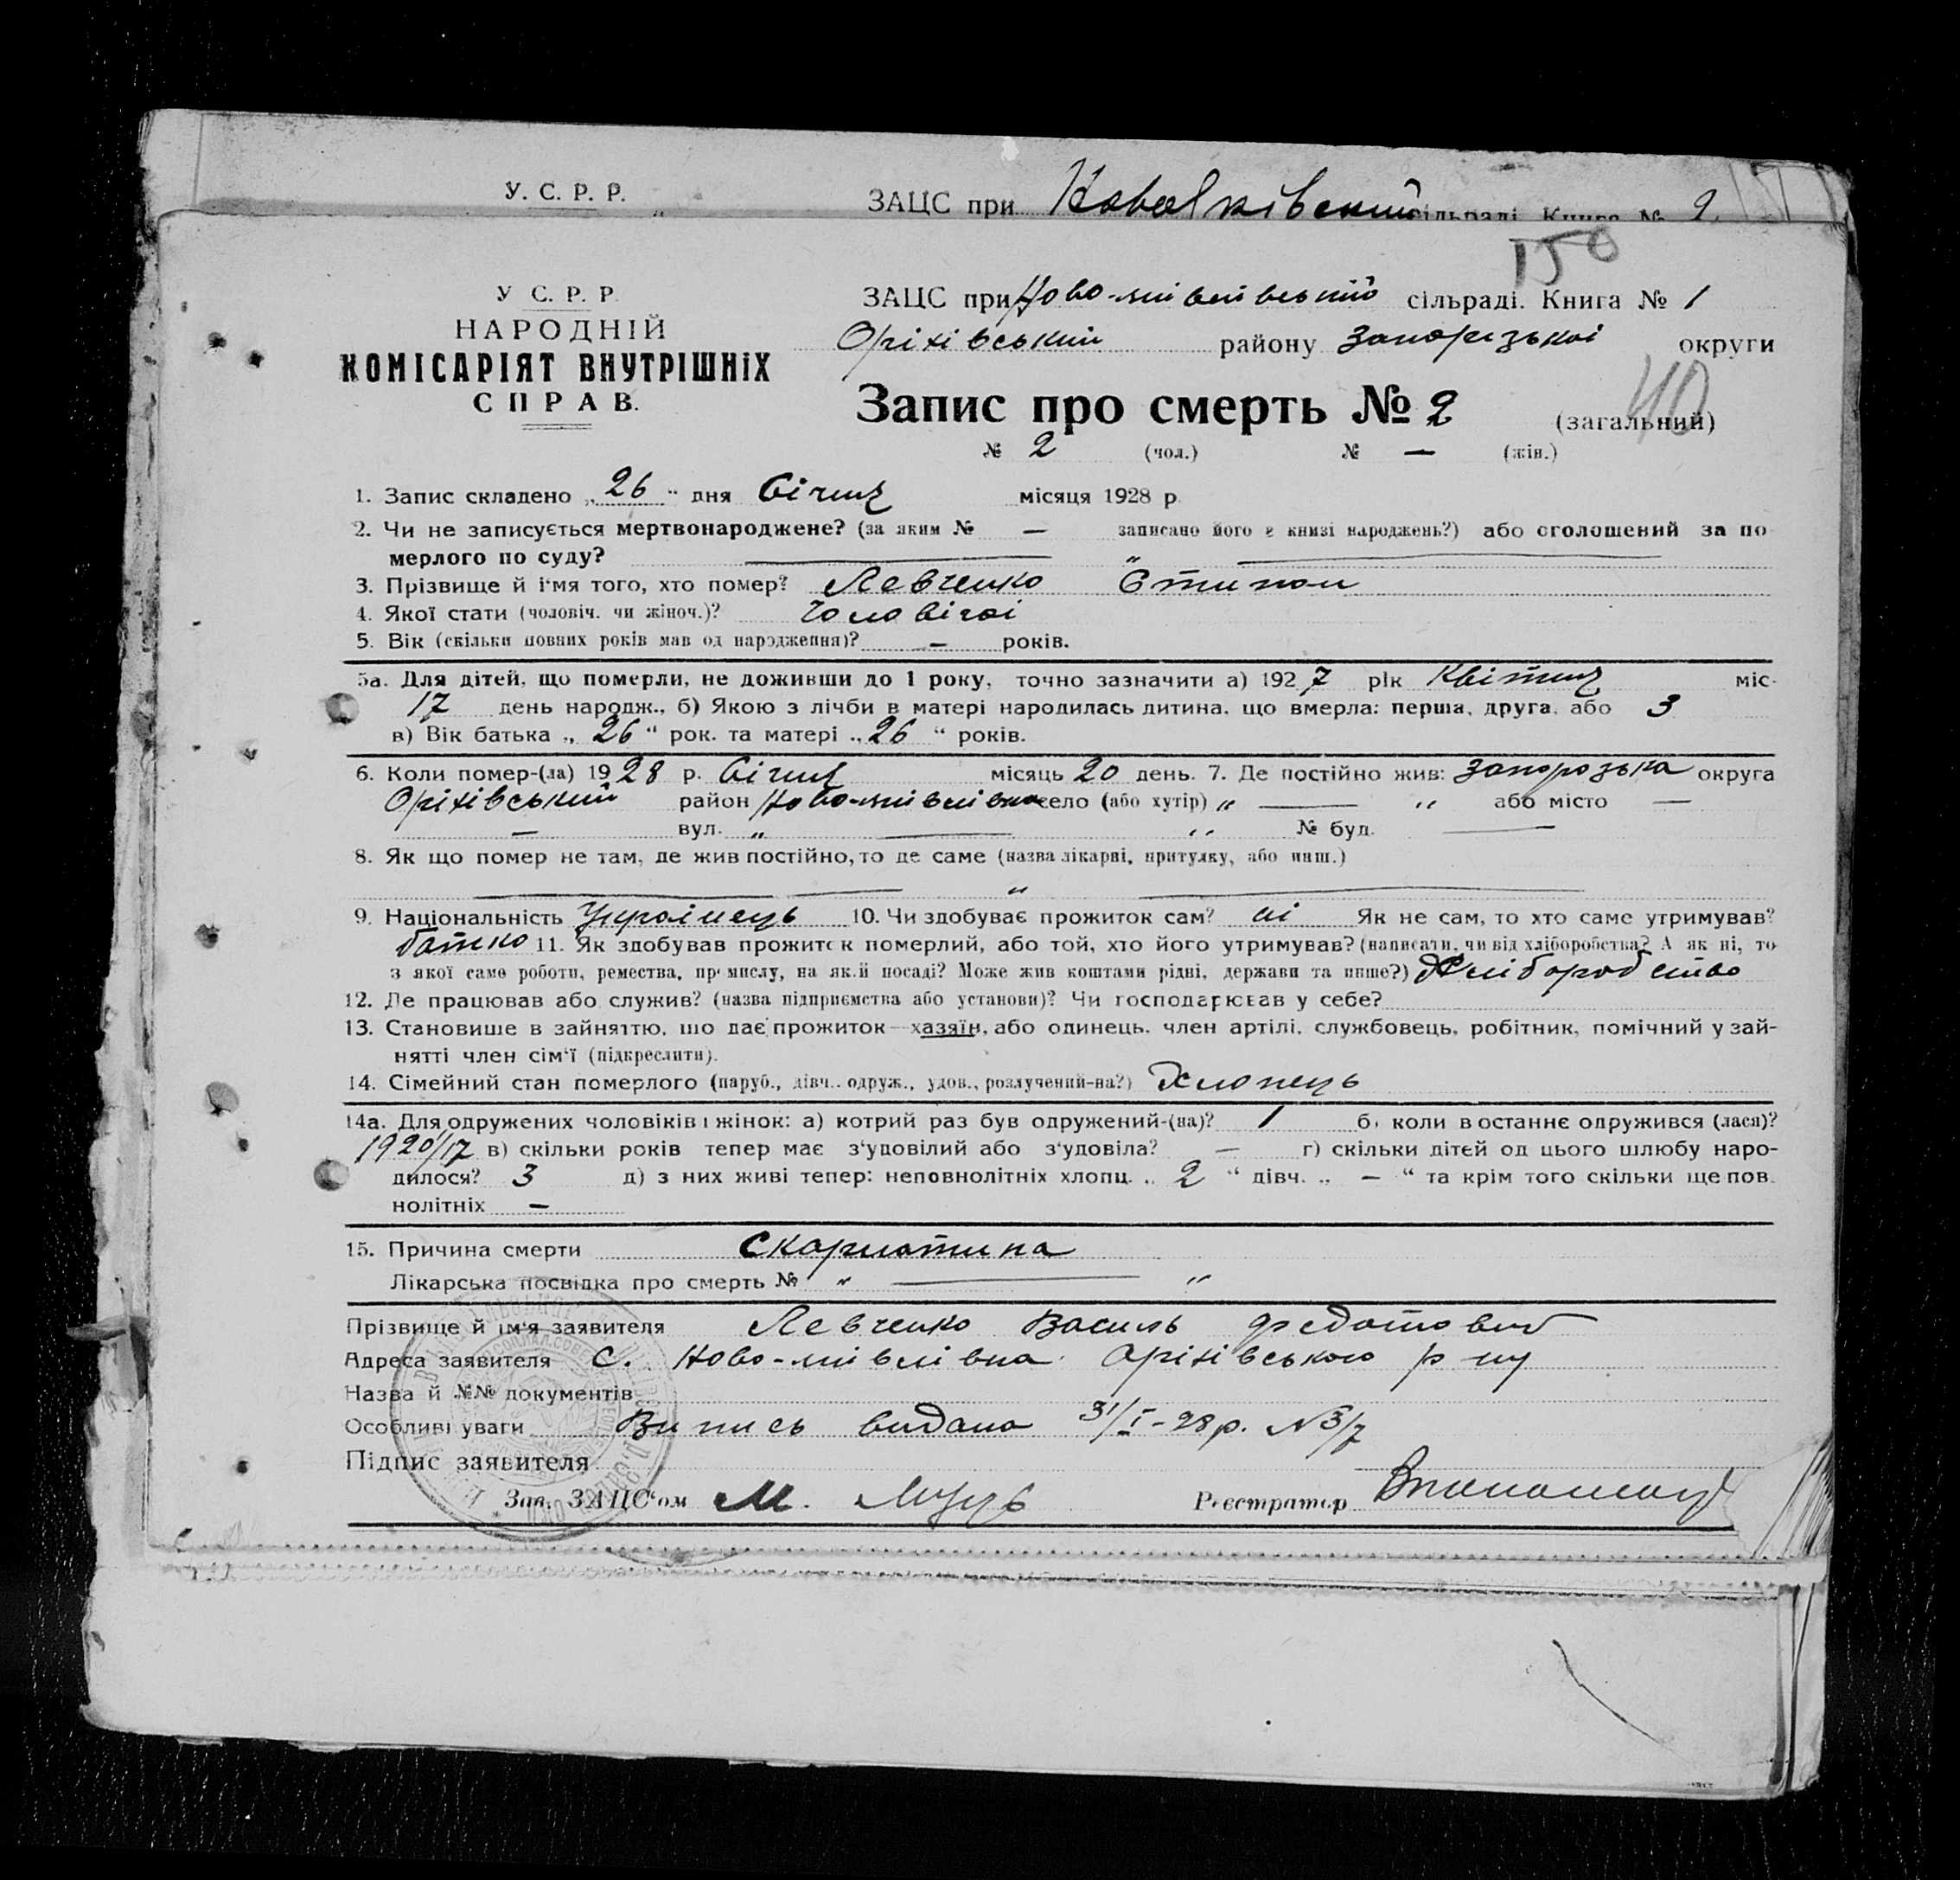 У. С. Р. Р.
ЗАЦС при сільраді. Книга № 2
150
У С. Р. Р.
НАРОДНІЙ
КОМІСАРІЯТ ВНУТРІШНІХ
СПРАВ.
ЗАЦС при Ново-мивлівській сільраді. Книга № 1
Оріхівський району Запорізької округи
40
Запис про смерть № 2 (загальний)
№ 2 (чол.) № — (жін.)
1. Запис складено „26" дня Січня місяця 1928 р
2. Чи не записується мертвонароджене? (за яким № — записано його в книзі народжень?) або оголошений за по-
мерлого по суду? — " —
3. Прізвище й ім'я того, хто помер? Левченко Степан
4. Якої стати (чоловіч. чи жіноч.)? Чоловічої
5. Вік (скільки повних років мав од народження)? — років.
5а. Для дітей, що померли, не доживши до 1 року, точно зазначити а) 1927 рік Квітня міс.
17 день народж., б) Якою з лічби в матері народилась дитина, що вмерла: перша, друга, або 3
в) Вік батька „26" рок. та матері „26" років.
6. Коли помер-(ла) 1928 р. Січня місяць 20 день. 7. Де постійно жив: Запорозька округа
Оріхівський район село (або хутір) " — " або місто —
— вул. " — " № буд. —
8. Як що помер не там, де жив постійно, то де саме (назва лікарні, притулку, або инш.)
— — " —
9. Національність Українець 10. Чи здобуває прожиток сам? ні Як не сам, то хто саме утримував?
батько 11. Як здобував прожиток померлий, або той, хто його утримував? (написати, чи від хліборобства? А як ні, то
з якої саме роботи, ремества, промислу, на якій посаді? Може жив коштами рідні, держави та инше?) Хліборобство
12. Де працював або служив? (назва підприємства або установи)? Чи господарював у себе?
13. Становище в зайняттю, що дає прожиток—хазяїн, або одинець, член артілі, службовець, робітник, помічний у зай-
нятті член сім'ї (підкреслити).
14. Сімейний стан померлого (паруб., дівч., одруж., удов., розлучений-на?) Хлопець
14а. Для одружених чоловіків і жінок: а) котрий раз був одружений-(на)? 1 б) коли востаннє одружився (лася)?
1920/17 в) скільки років тепер має з'удовілий або з'удовіла? — г) скільки дітей од цього шлюбу наро-
дилося? 3 д) з них живі тепер: неповнолітніх хлопц. „2" дівч. „—" та крім того скільки ще пов.
нолітніх —
15. Причина смерти Скарлатина
Лікарська посвідка про смерть № " — "
Прізвище й ім'я заявителя Левченко Василь Федотович
Адреса заявителя С. Ново- Оріхівського р-ну
Назва й №№ документів
Особливі уваги Випись видана 31/I-28р. №3/7
Підпис заявителя
Зав. ЗАЦС'ом М.
Реєстратор